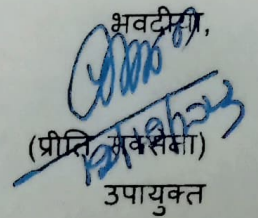 भवदीया,
(प्रीति सक्सेना)
उपायुक्त